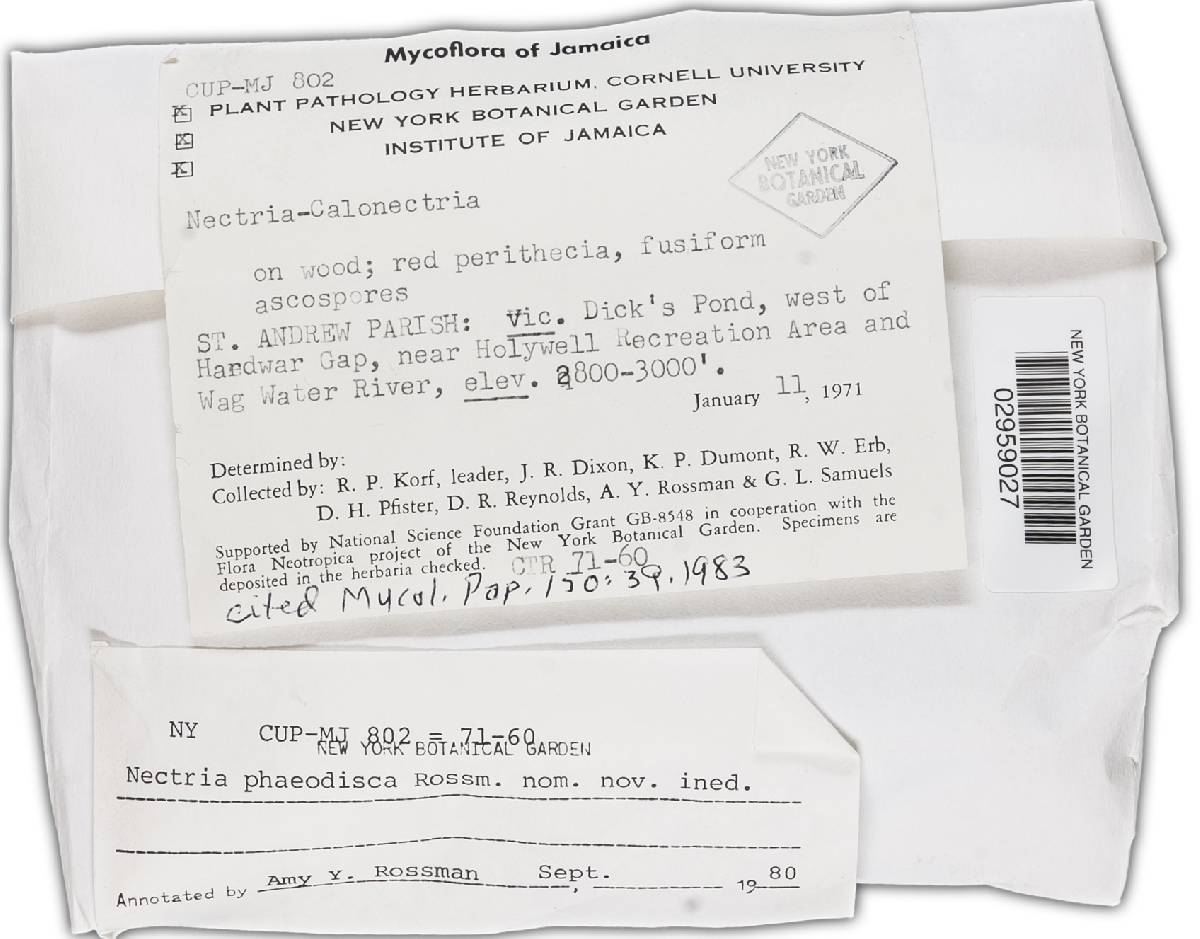 Mycoflora of Jamaica
CUP-MJ 802
PLANT PATHOLOGY HERBARIUM, CORNELL UNIVERSITY
NEW YORK BOTANICAL GARDEN
INSTITUTE OF JAMAICA
NEW YORK
BOTANICAL
GARDEN
Nectria-Calonectria
on wood; red perithecia, fusiform
ascospores
ST. ANDREW PARISH: Vic. Dick's Pond, west of
Hardwar Gap, near Holywell Recreation Area and
Wag Water River, elev. 2800-3000'.
January 11, 1971
Determined by:
Collected by: R. P. Korf, leader, J. R. Dixon, K. P. Dumont, R. W. Erb,
D. H. Pfister, D. R. Reynolds, A. Y. Rossman & G. L. Samuels
Supported by National Science Foundation Grant GB-8548 in cooperation with the
Flora Neotropica project of the New York Botanical Garden. Specimens are
deposited in the herbaria checked. CTR 71-60
cited Mycol. Pap. 150: 39. 1983
NEW YORK BOTANICAL GARDEN
02959027
NY CUP-MJ 802 = 71-60
NEW YORK BOTANICAL GARDEN
Nectria phaeodisca Rossm. nom. nov. ined.
Annotated by Amy Y. Rossman Sept. , 1980